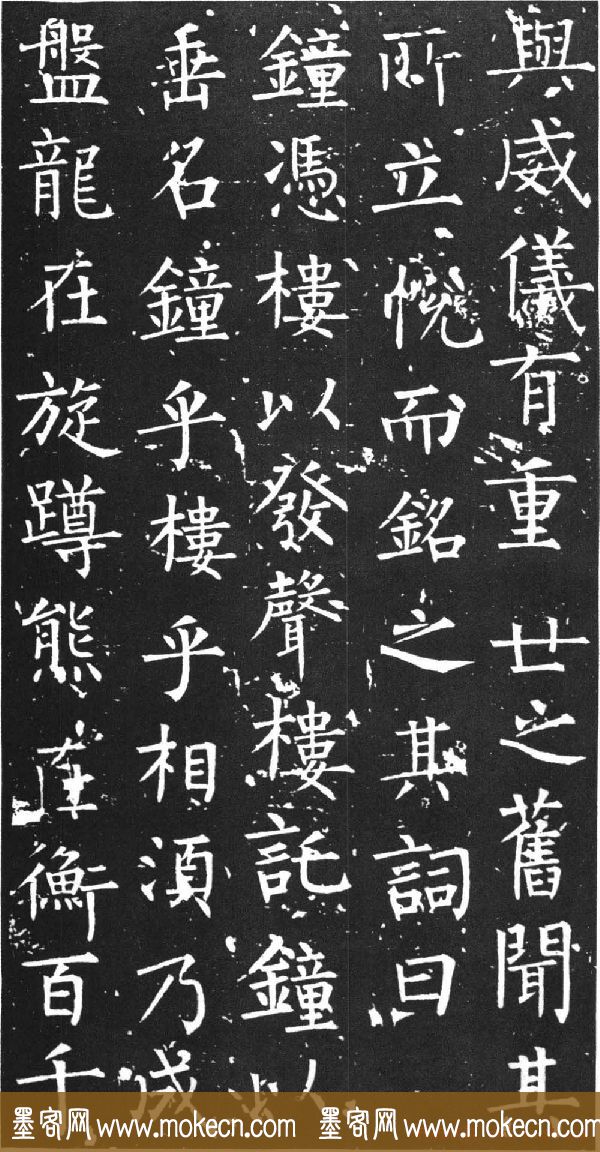 與威儀有重廿之舊聞其
所立悅而銘之其詞曰
鐘憑樓以發聲樓託鐘以
垂名鐘乎樓乎相須乃成
盤龍在旋蹲熊在衡百千
墨客网 www.mokecn.com 墨客网 www.mokecn.com